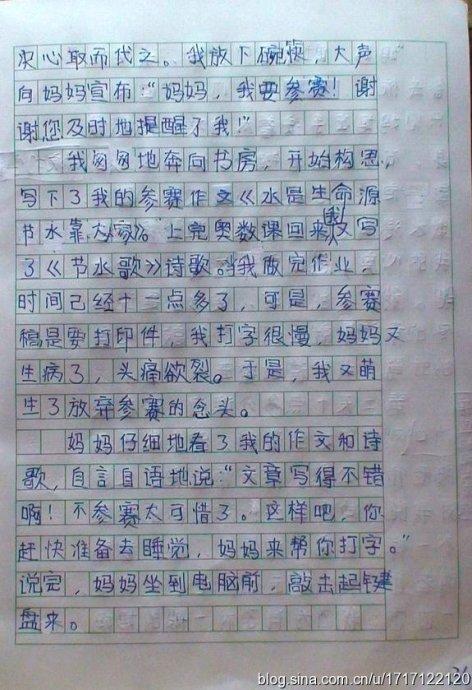 决心取而代之。我放下碗筷，大声
向妈妈宣布：“妈妈，我要参赛！谢
谢您及时地提醒了我！”
我匆匆地奔向书房，开始构思，
写下了我的参赛作文《水是生命源
节水靠大家》。上完奥数课回来我又写
了《节水歌》诗歌。当我做完作业，
时间已经十一点多了，可是，参赛
稿是要打印件，我打字很慢，妈妈又
生病了，头痛欲裂。于是，我又萌
生了放弃参赛的念头。
妈妈仔细地看了我的作文和诗
歌，自言自语地说：“文章写得不错
啊！不参赛太可惜了。这样吧，你
赶快准备去睡觉，妈妈来帮你打字。”
说完，妈妈坐到电脑前，敲击起键
盘来。
blog.sina.com.cn/u/1717122120